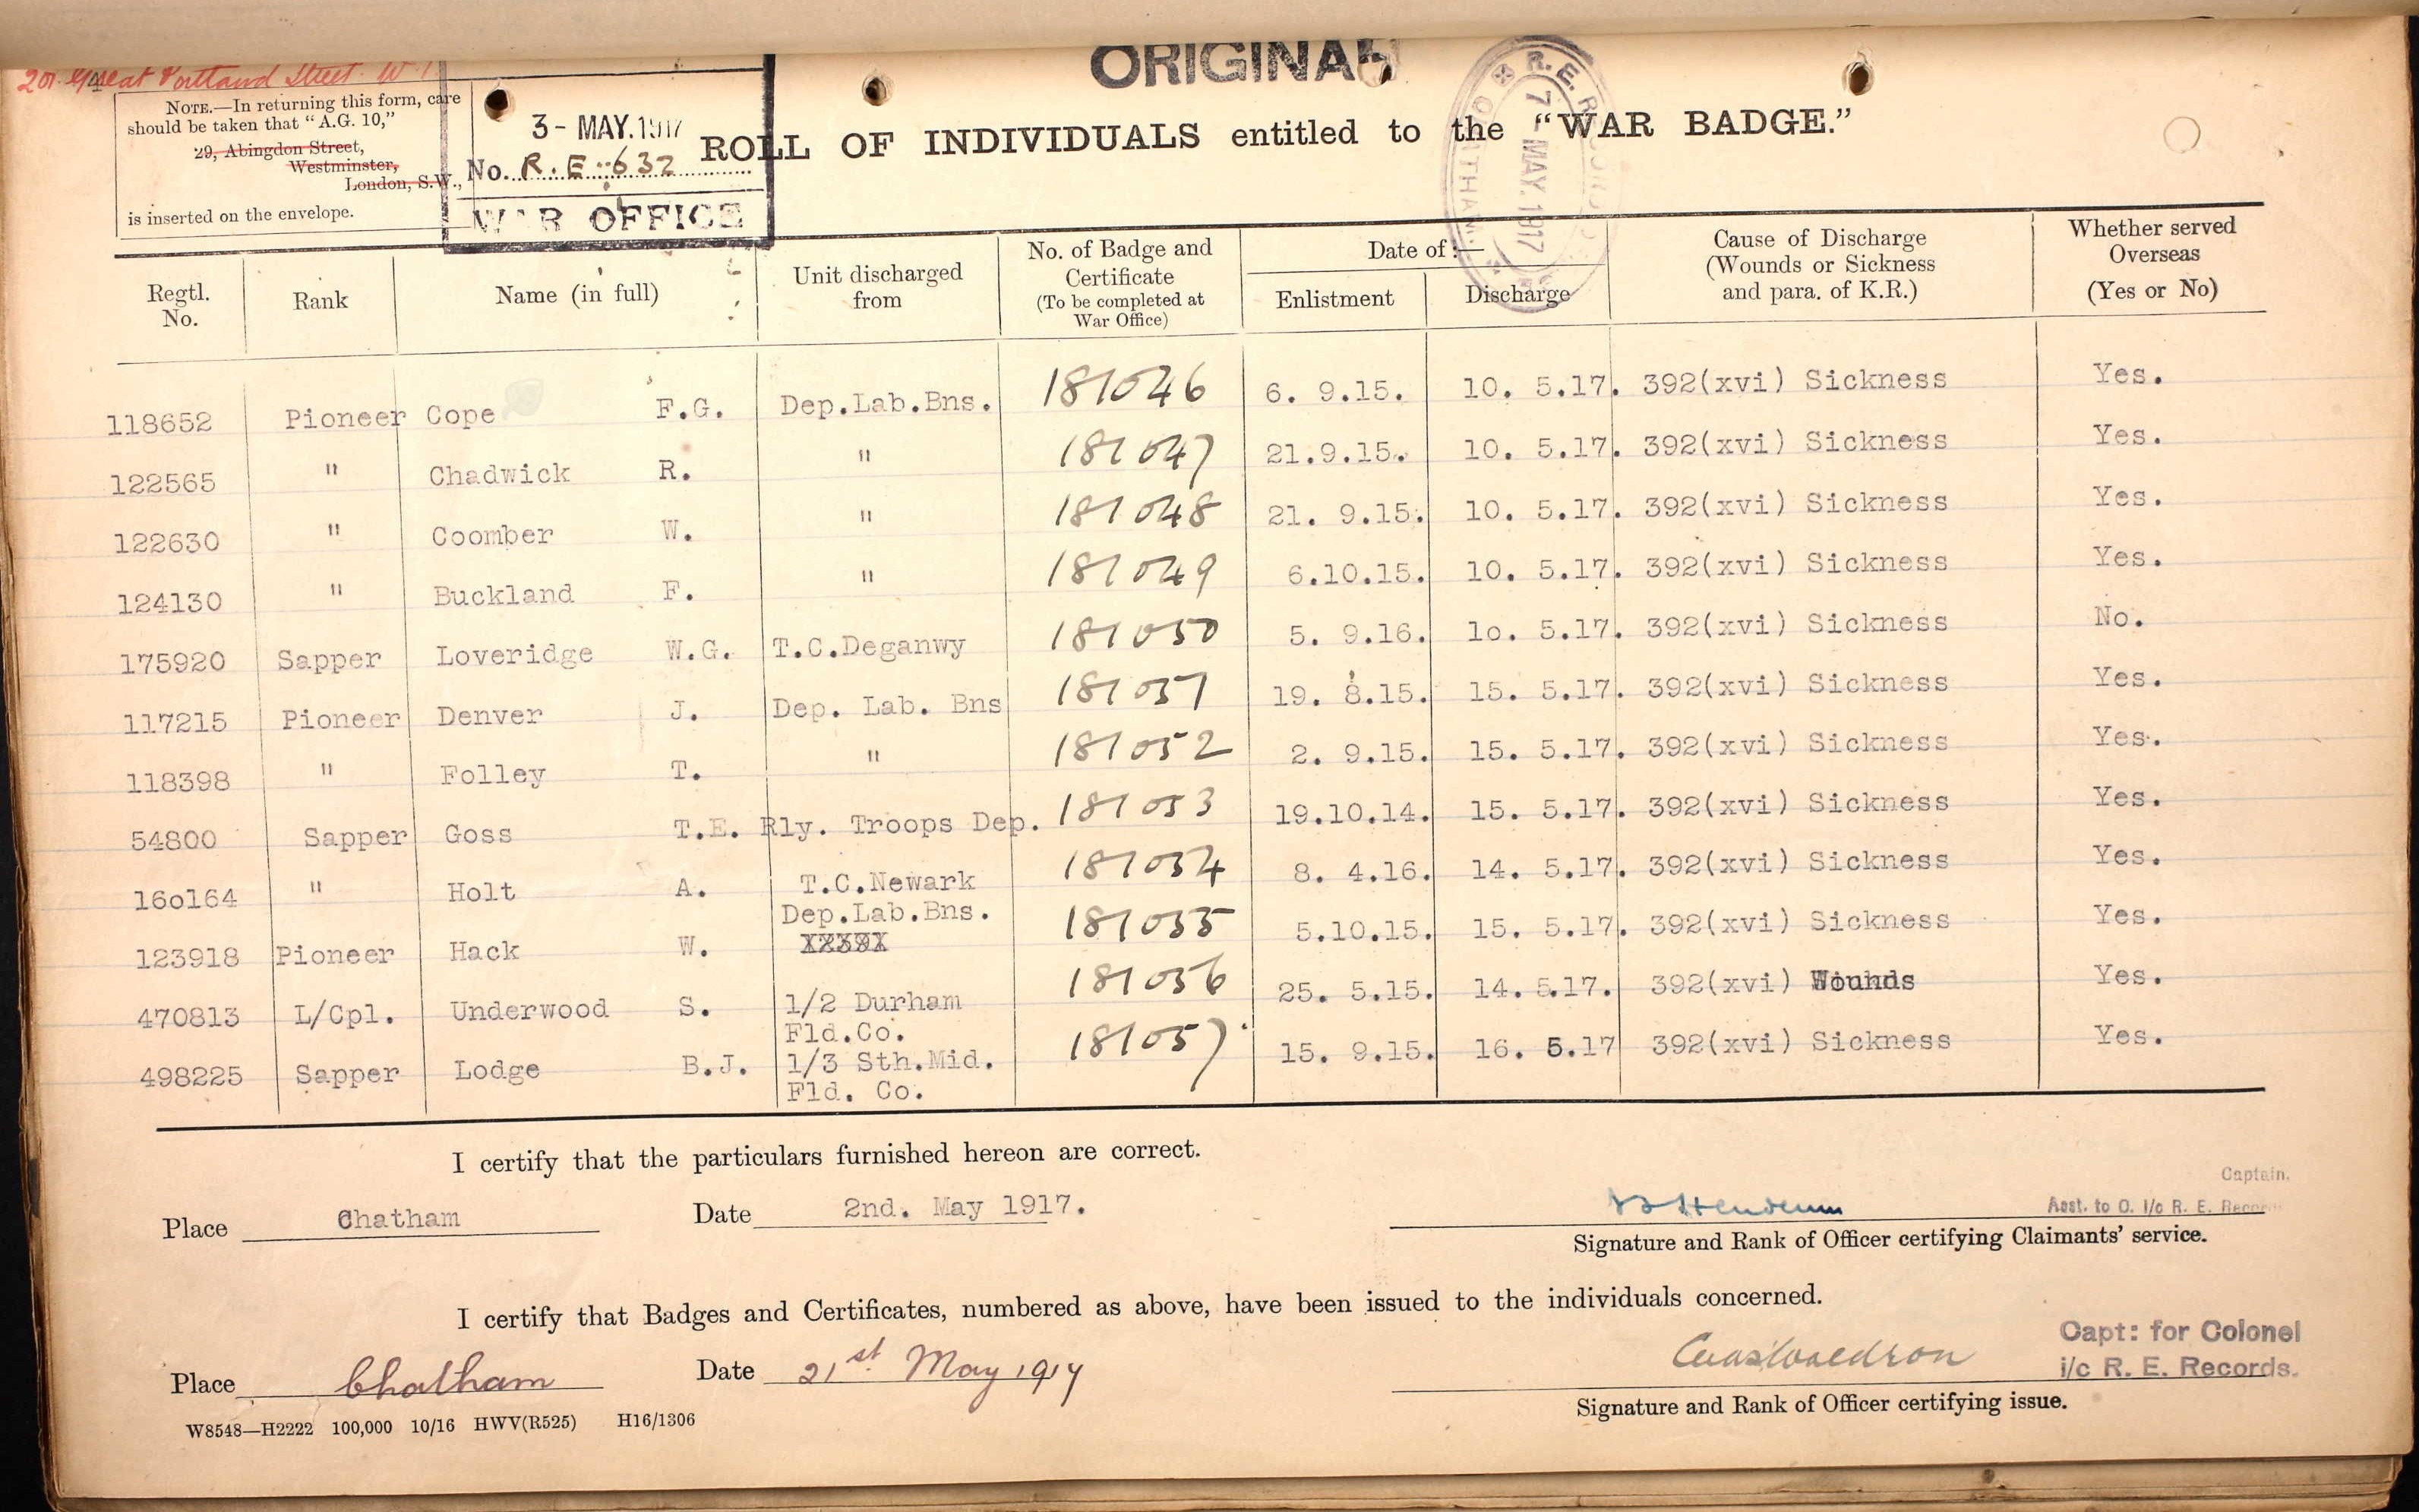 ORIGINAL
201. Great Portland Street. W.1
NOTE.—In returning this form, care
should be taken that "A.G. 10,"
29, Abingdon Street,
Westminster,
London, S.W.,
is inserted on the envelope.
3 - MAY. 1917
No. R.E. 632
WAR OFFICE
ROLL OF INDIVIDUALS entitled to the "WAR BADGE."
7 - MAY. 1917
Regtl. No. | Rank | Name (in full) | Unit discharged from | No. of Badge and Certificate (To be completed at War Office) | Date of :— Enlistment | Discharge | Cause of Discharge (Wounds or Sickness and para. of K.R.) | Whether served Overseas (Yes or No)
118652 Pioneer Cope F.G. Dep.Lab.Bns. 181046 6. 9.15. 10. 5.17. 392(xvi) Sickness Yes.
122565 " Chadwick R. " 181047 21.9.15. 10. 5.17. 392(xvi) Sickness Yes.
122630 " Coomber W. " 181048 21. 9.15. 10. 5.17. 392(xvi) Sickness Yes.
124130 " Buckland F. " 181049 6.10.15. 10. 5.17. 392(xvi) Sickness Yes.
175920 Sapper Loveridge W.G. T.C.Deganwy 181050 5. 9.16. 1o. 5.17. 392(xvi) Sickness No.
117215 Pioneer Denver J. Dep. Lab. Bns 181051 19. 8.15. 15. 5.17. 392(xvi) Sickness Yes.
118398 " Folley T. " 181052 2. 9.15. 15. 5.17. 392(xvi) Sickness Yes.
54800 Sapper Goss T.E. Rly. Troops Dep. 181053 19.10.14. 15. 5.17. 392(xvi) Sickness Yes.
16o164 " Holt A. T.C.Newark 181054 8. 4.16. 14. 5.17. 392(xvi) Sickness Yes.
123918 Pioneer Hack W. Dep.Lab.Bns. 181055 5.10.15. 15. 5.17. 392(xvi) Sickness Yes.
470813 L/Cpl. Underwood S. 1/2 Durham Fld.Co. 181056 25. 5.15. 14. 5.17. 392(xvi) Wounds Yes.
498225 Sapper Lodge B.J. 1/3 Sth.Mid. Fld. Co. 181057 15. 9.15. 16. 5.17 392(xvi) Sickness Yes.
I certify that the particulars furnished hereon are correct.
Captain.
Place Chatham Date 2nd. May 1917. Asst. to O. I/c R. E. Records
Signature and Rank of Officer certifying Claimants' service.
I certify that Badges and Certificates, numbered as above, have been issued to the individuals concerned.
Capt: for Colonel
Place Chatham Date 21st May 1917 i/c R. E. Records.
Signature and Rank of Officer certifying issue.
W8548—H2222 100,000 10/16 HWV(R525) H16/1306